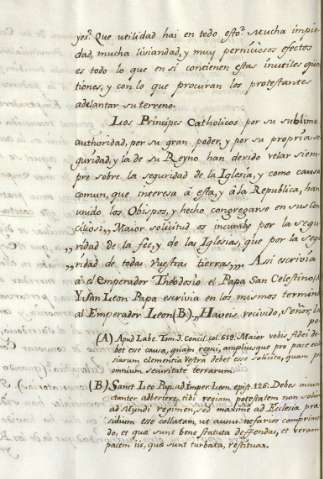 yos. Que utilidad hai en todo esto? Mucha impie-
dad, mucha liviandad, y muy perniciosos efectos
es todo lo que en sí contienen estas inutiles qües-
tiones, y con lo que procuran los protestantes
adelantar su terreno.
Los Principes Catholicos por su sublime
authoridad, por su gran poder, y por su propria se-
guridad, y la de su Reyno han devido velar siem-
pre sobre la seguridad de la Iglesia, y como causa
comun, que interesa á esta, y á la Republica, han
unido los Obispos, y hecho congregarse en sus Con-
cilios: „Maior solicitud os incumbe por la segu-
„ridad de la feé, y de las Iglesias, que por la segu-
„ridad de todas vuestras tierras„ Asi escrivia
á el emperador Theodosio el Papa San Celestino (A)
Y San Leon Papa escrivia en los mismos terminos
al Emperador Leon (B) „Haveis recivido, Señor, la po-
(A) Apud Labe. Tom. 3. Concil. col. 618. Maior vobis fidei de-
bet esse causa, quam regni, ampliusque pro pace eccle-
siarum clementia Vestra debet esse solicita, quam pro
omnium securitate terrarum.
(B) Sanct. Leo Pap. ad Imper. Leon. epist. 125. Debes incunc-
tanter advertere, tibi regiam potestatem non solum
ad Mundi regimen, sed maxime ad Ecclesiæ præ-
sidium esse collatam, ut ausus nefarios comprimen-
do, et quæ sunt bene statuta deffendas, et veram
pacem iis, quæ sunt turbata, restituas.